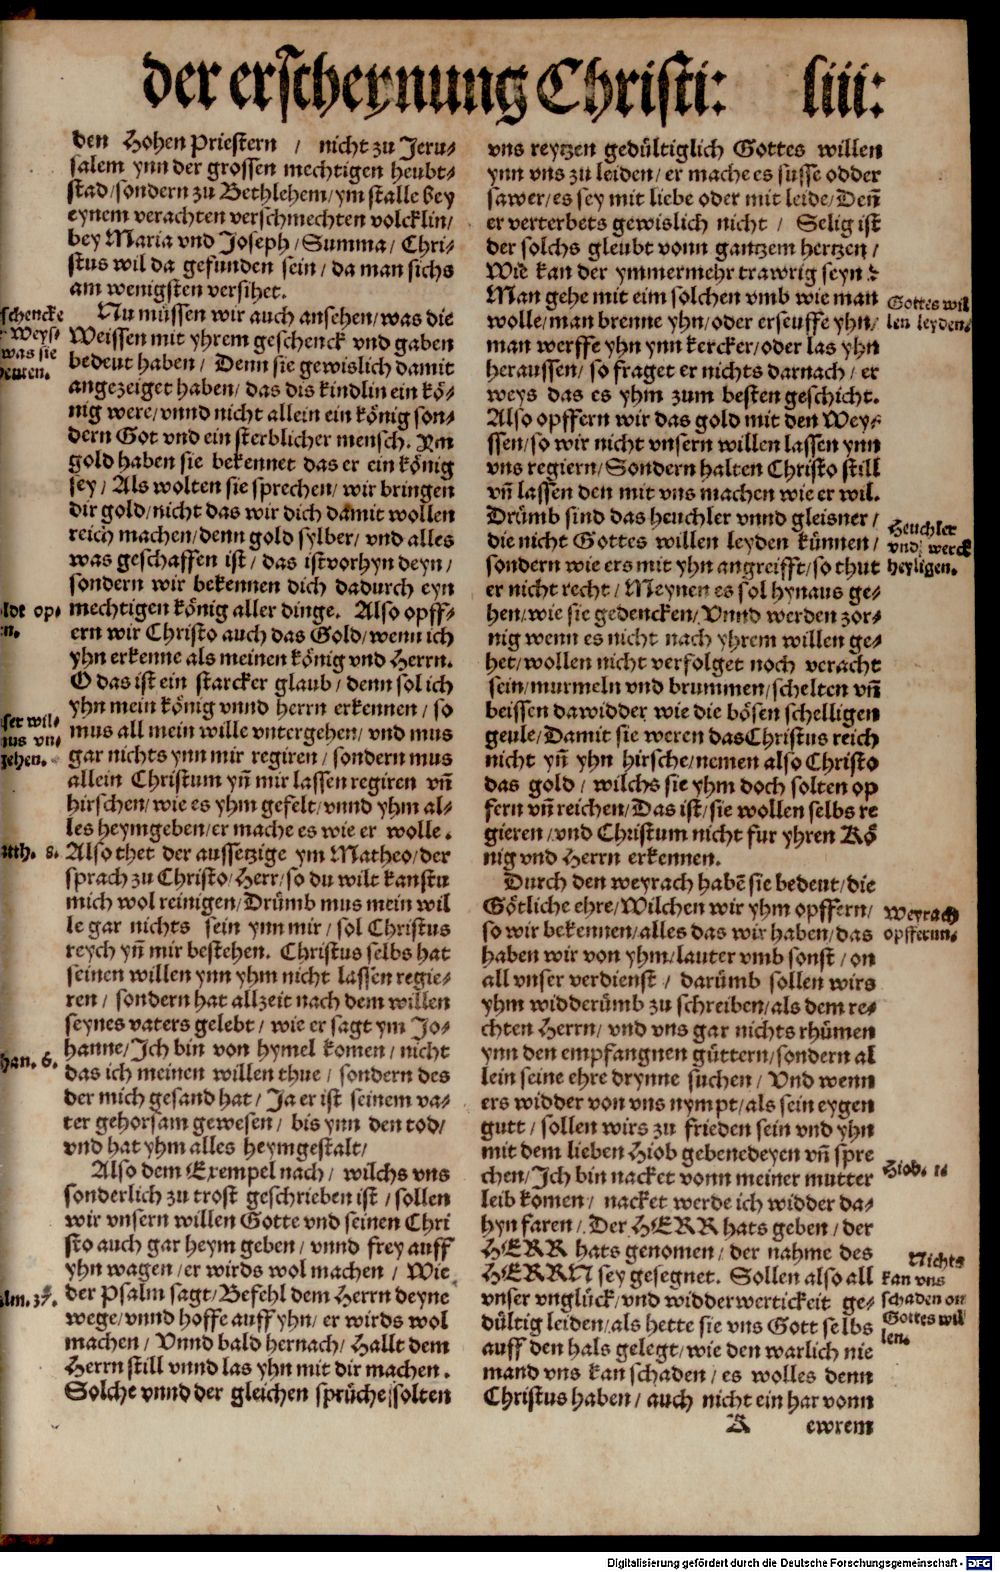 der erscheynung Christi: liiii:
den Hohen Priestern / nicht zu Jeru-
salem ynn der grossen mechtigen heubt-
stad/sondern zu Bethlehem/ym stalle bey
eynem verachten verschmechten volcklin/
bey Maria vnd Joseph/Summa/Chri-
stus wil da gefunden sein/da man sichs
am wenigsten versihet.
schencke
Weys-
was sie
Nu müssen wir auch ansehen/was die
Weissen mit yhrem geschenck vnd gaben
bedeut haben/ Denn sie gewislich damit
angezeiget haben/das dis kindlin ein kö-
nig were/vnnd nicht allein ein könig son-
dern Got vnd ein sterblicher mensch. Am
gold haben sie bekennet das er ein könig
sey/Als wolten sie sprechen/wir bringen
dir gold/nicht das wir dich damit wollen
reich machen/denn gold sylber/vnd alles
was geschaffen ist/das ist vorhyn deyn/
sondern wir bekennen dich dadurch eyn
mechtigen könig aller dinge. Also opff-
ern wir Christo auch das Gold/wenn ich
yhn erkenne als meinen könig vnd Herrn.
O das ist ein starcker glaub/denn sol ich
yhn mein könig vnnd herrn erkennen/so
mus all mein wille vntergehen/vnd mus
gar nichts ynn mir regiren/sondern mus
allein Christum yn̄ mir lassen regiren vn̄
hirschen/wie es yhm gefelt/vnnd yhm al-
les heymgeben/er mache es wie er wolle.
ldt op-
n.
ser wil-
mus vn-
gehen.
atth. 8.
Also thet der aussetzige ym Matheo/der
sprach zu Christo/Herr/so du wilt kanstu
mich wol reinigen/Drümb mus mein wil
le gar nichts sein ynn mir/sol Christus
reych yn̄ mir bestehen. Christus selbs hat
seinen willen ynn yhm nicht lassen regie-
ren/sondern hat allzeit nach dem willen
seynes vaters gelebt/wie er sagt ym Jo-
hanne/Ich bin von hymel komen/nicht
das ich meinen willen thue/sondern des
der mich gesand hat/Ja er ist seinem va-
ter gehorsam gewesen/bis ynn den tod/
vnd hat yhm alles heymgestalt/
han. 6.
Also dem Exempel nach/wilchs vns
sonderlich zu trost geschrieben ist/sollen
wir vnsern willen Gotte vnd seinen Chri
sto auch gar heym geben/vnnd frey auff
yhn wagen/er wirds wol machen/Wie
der Psalm sagt/Befehl dem Herrn deyne
wege/vnnd hoffe auff yhn/er wirds wol
machen/Vnnd bald hernach/Hallt dem
Herrn still vnnd las yhn mit dir machen.
Solche vnnd der gleichen sprüche/solten
alm. 37.
vns reytzen gedültiglich Gottes willen
ynn vns zu leiden/er mache es susse odder
sawer/es sey mit liebe oder mit leide/Den̄
er verterbets gewislich nicht/Selig ist
der solchs gleubt vonn gantzem hertzen/
Wie kan der ymmermehr trawrig seyn?
Man gehe mit eim solchen vmb wie man
wolle/man brenne yhn/oder erseuffe yhn/
man werffe yhn ynn kercker/oder las yhn
heraussen/so fraget er nichts darnach/er
weys das es yhm zum besten geschicht.
Gottes wil
len leyden.
Also opffern wir das gold mit den Wey-
ssen/so wir nicht vnsern willen lassen ynn
vns regiern/Sondern halten Christo still
vn̄ lassen den mit vns machen wie er wil.
Drümb sind das heuchler vnnd gleisner/
die nicht Gottes willen leyden künnen/
sondern wie ers mit yhn angreifft/so thut
er nicht recht/Meynen es sol hynaus ge-
hen/wie sie gedencken/Vnnd werden zor-
nig wenn es nicht nach yhrem willen ge-
het/wollen nicht verfolget noch veracht
sein/murmeln vnd brummen/schelten vn̄
beissen dawidder wie die bösen schelligen
geule/Damit sie weren das Christus reich
nicht yn̄ yhn hirsche/nemen also Christo
das gold/wilchs sie yhm doch solten op
fern vn̄ reichen/Das ist/sie wollen selbs re
gieren/vnd Christum nicht fur yhren Kö
nig vnd Herrn erkennen.
Heuchler
vnd werck
heyligen.
Durch den weyrach habē sie bedeut/die
Götliche ehre/Wilchen wir yhm opffern/
so wir bekennen/alles das wir haben/das
haben wir von yhm/lauter vmb sonst/on
all vnser verdienst/darümb sollen wirs
yhm widderümb zu schreiben/als dem re-
chten Herrn/vnd vns gar nichts rhümen
ynn den empfangnen güttern/sondern al
lein seine ehre drynne suchen/Vnd wenn
ers widder von vns nympt/als sein eygen
gutt/sollen wirs zu frieden sein vnd yhn
mit dem lieben Hiob gebenedeyen vn̄ spre
chen/Ich bin nacket vonn meiner mutter
leib komen/nacket werde ich widder da-
hyn faren/Der HERR hats geben/der
HERR hats genomen/der nahme des
HERRN sey gesegnet. Sollen also all
vnser vnglück/vnd widderwertickeit ge-
dültig leiden/als hette sie vns Gott selbs
auff den hals gelegt/wie den warlich nie
mand vns kan schaden/es wolles denn
Christus haben/auch nicht ein har vonn
Weyrach
opfferun.
Hiob. 1.
Nichts
kan vns
schaden on
Gottes wil
len.
A ewrem
Digitalisierung gefördert durch die Deutsche Forschungsgemeinschaft - DFG